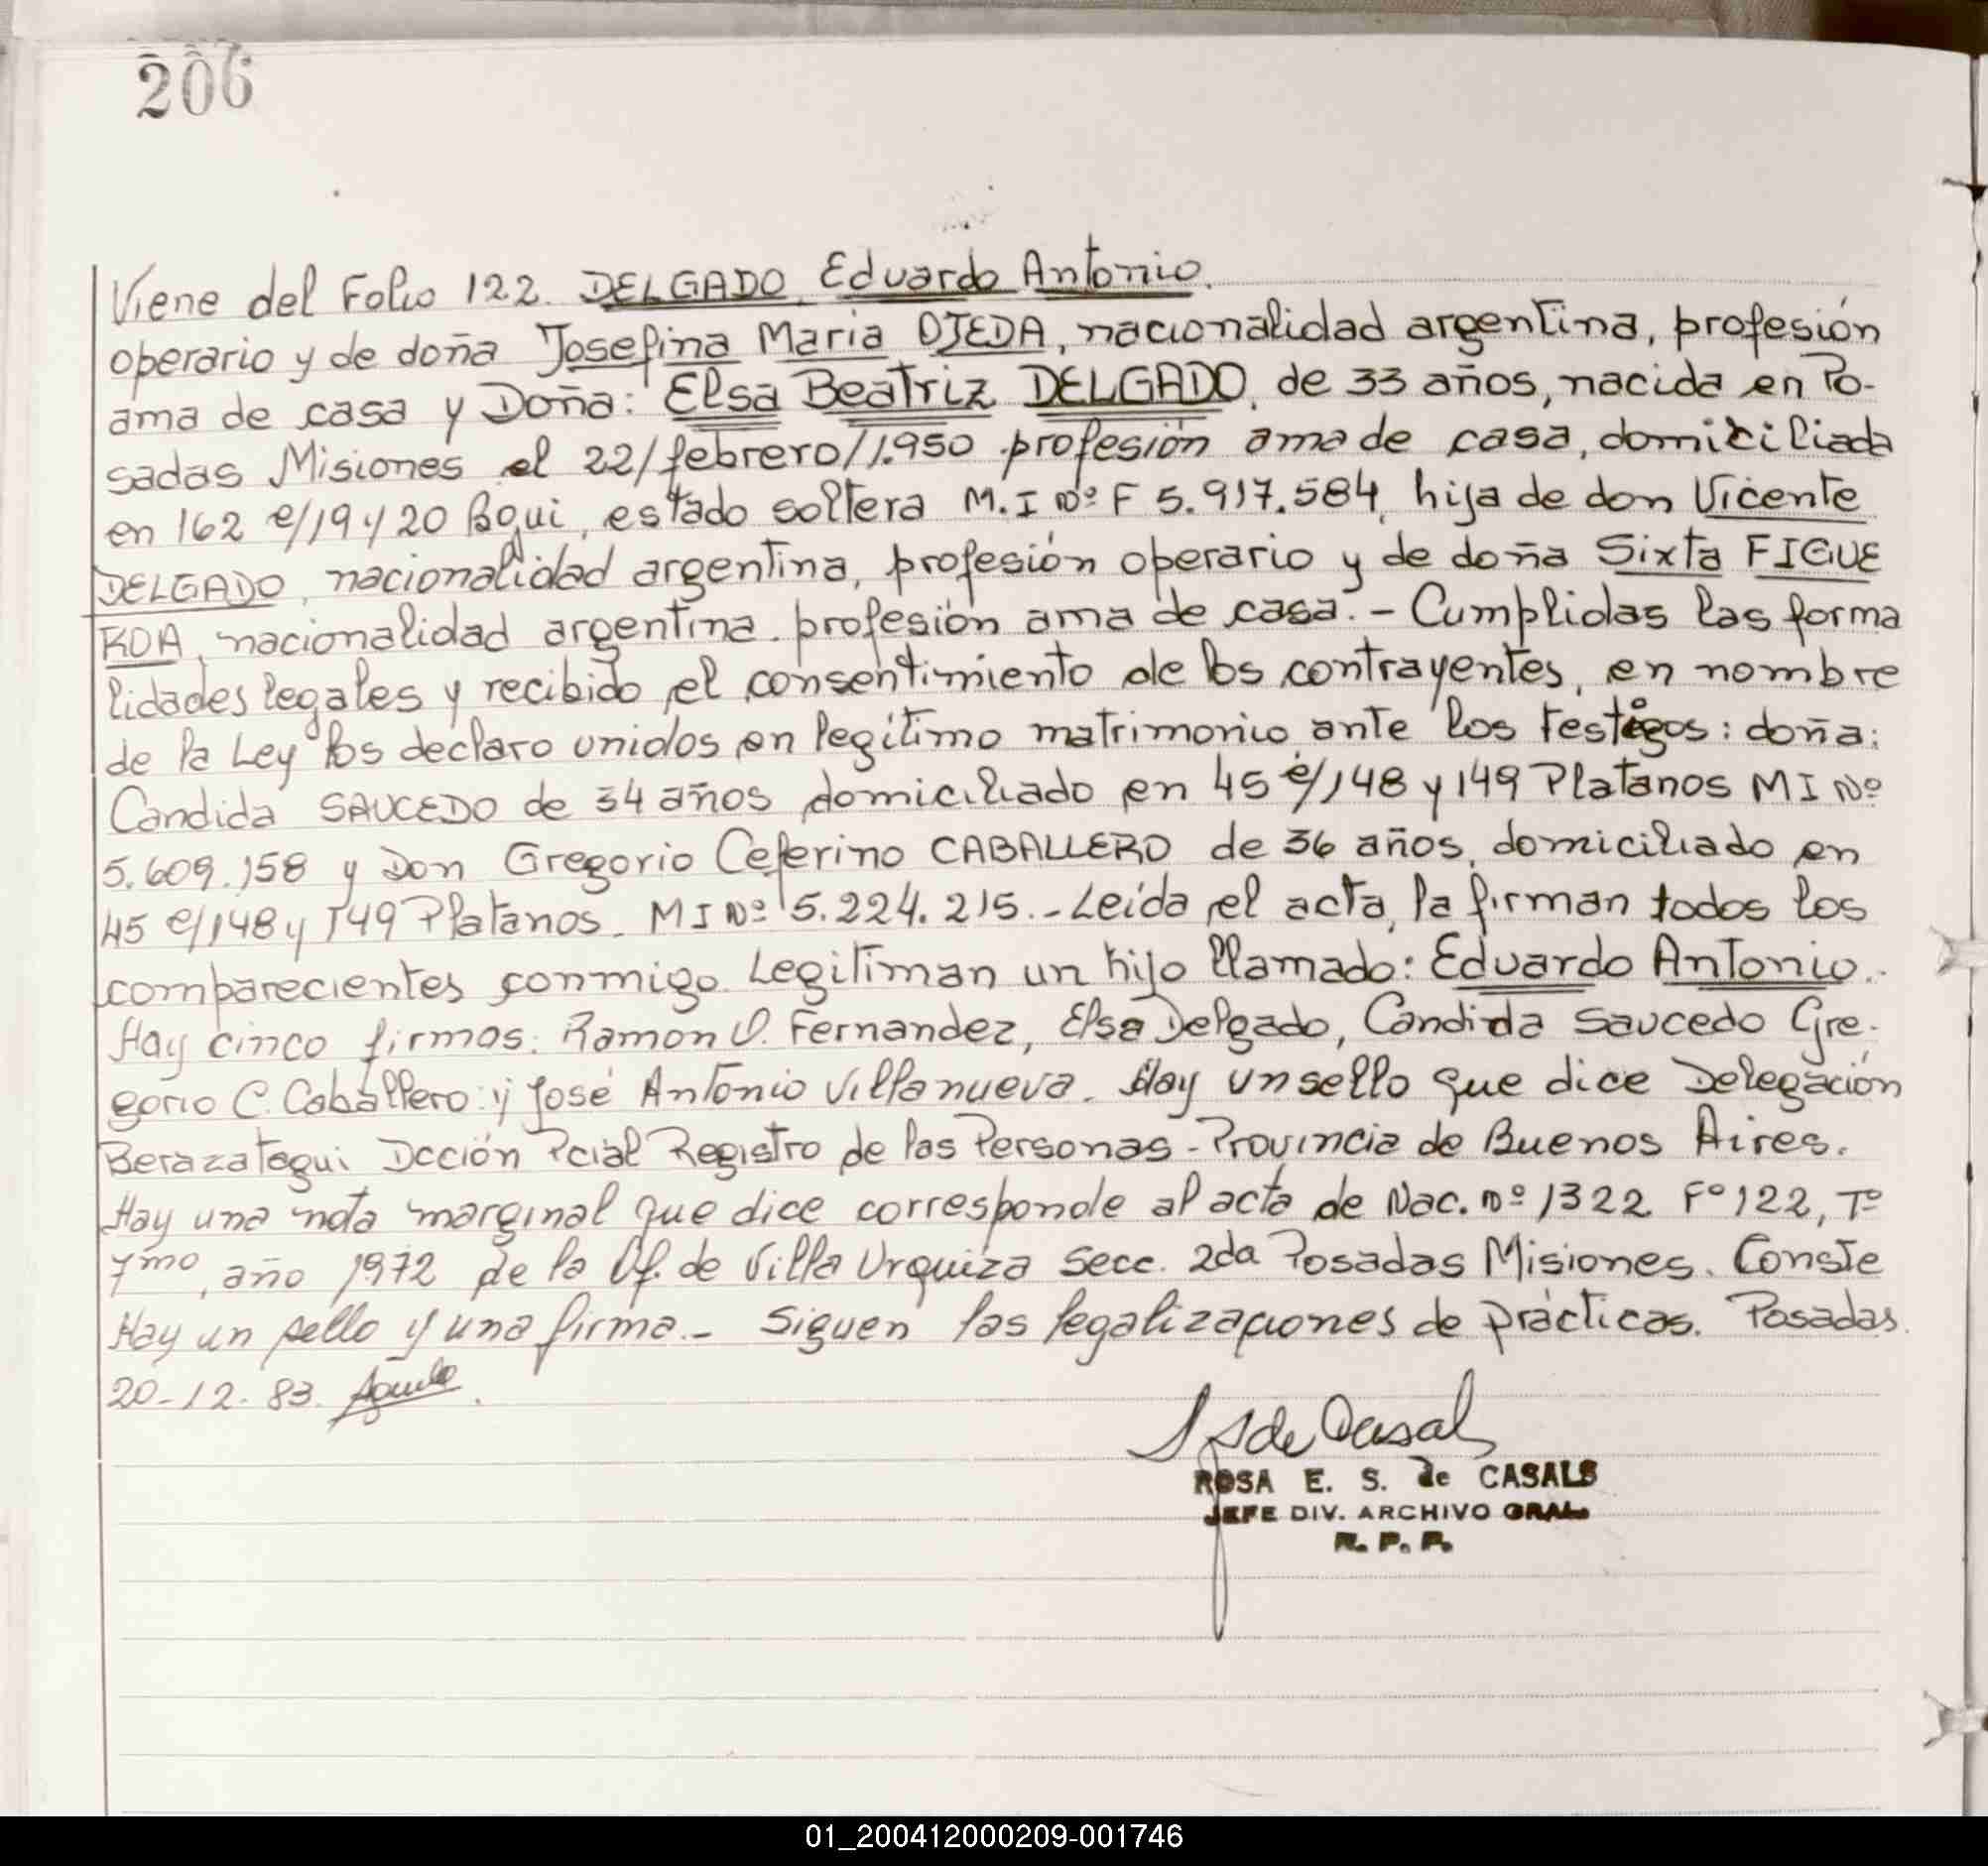 206
Viene del Folio 122. DELGADO Eduardo Antonio.
operario y de doña Josefina Maria OJEDA, nacionalidad argentina, profesión
ama de casa y Doña: Elsa Beatriz DELGADO, de 33 años, nacida en Po-
sadas Misiones el 22/febrero/1.950 profesión ama de casa, domiciliada
en 162 e/19 y 20 Bqui, estado soltera M.I Nº F 5.917.584, hija de don Vicente
DELGADO, nacionalidad argentina, profesión operario y de doña Sixta FIGUE
ROA, nacionalidad argentina. profesión ama de casa. - Cumplidas las forma
lidades legales y recibido el consentimiento de los contrayentes, en nombre
de la Ley los declaro unidos en legítimo matrimonio ante los testigos: doña:
Candida SAUCEDO de 34 años domiciliado en 45 e/148 y 149 Platanos MI Nº
5.609.158 y Don Gregorio Ceferino CABALLERO de 36 años, domiciliado en
45 e/148 y 149 Platanos. MI Nº 5.224.215.- Leída el acta, la firman todos los
comparecientes conmigo. Legitiman un hijo llamado: Eduardo Antonio.
Hay cinco firmas: Ramon V. Fernandez, Elsa Delgado, Candida Saucedo Gre-
gorio C. Caballero y José Antonio Villanueva. Hay un sello que dice Delegación
Berazategui Dcción Pcial Registro de las Personas - Provincia de Buenos Aires.
Hay una nota marginal que dice corresponde al acta de Nac. Nº 1322 Fº 122, Tº
7mo, año 1972 de la Of. de Villa Urquiza Secc. 2da Posadas Misiones. Conste
Hay un sello y una firma.- Siguen las legalizaciones de prácticas. Posadas.
20-12-83.
ROSA E. S. de CASALS
JEFE DIV. ARCHIVO GRAL.
R. P. P.
01_200412000209-001746